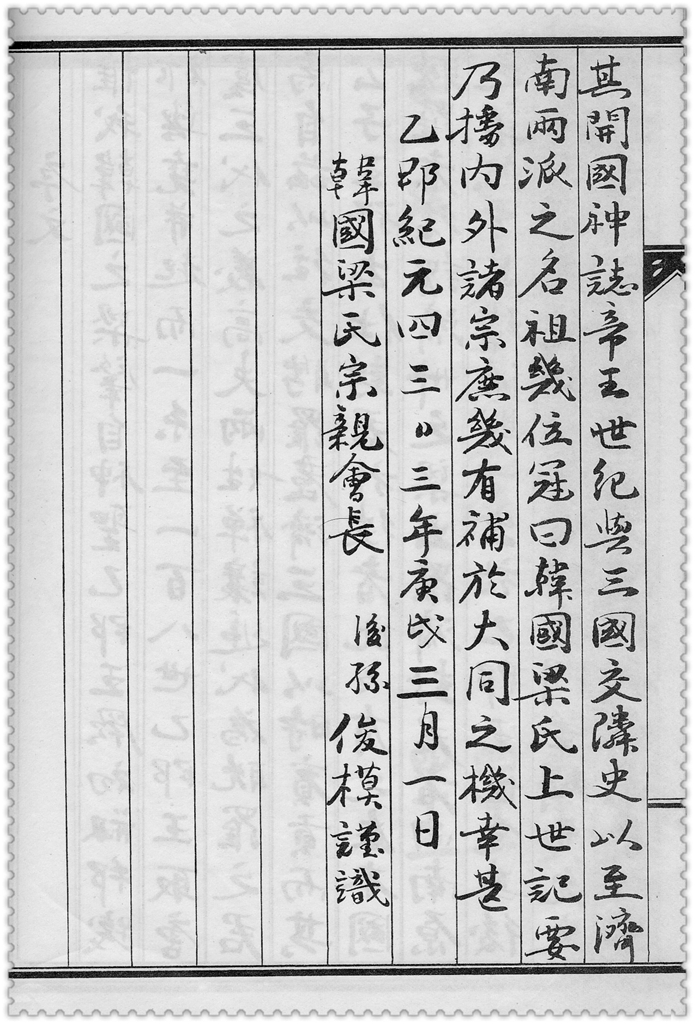 其開國神誌帝王世紀與三國交隣史以至濟
南兩派之名祖幾位冠曰韓國梁氏上世記要
乃播內外諸宗庶幾有補於大同之機幸甚
乙那紀元四三〃三年庚戌三月一日
韓國梁氏宗親會長 後孫 俊模謹識